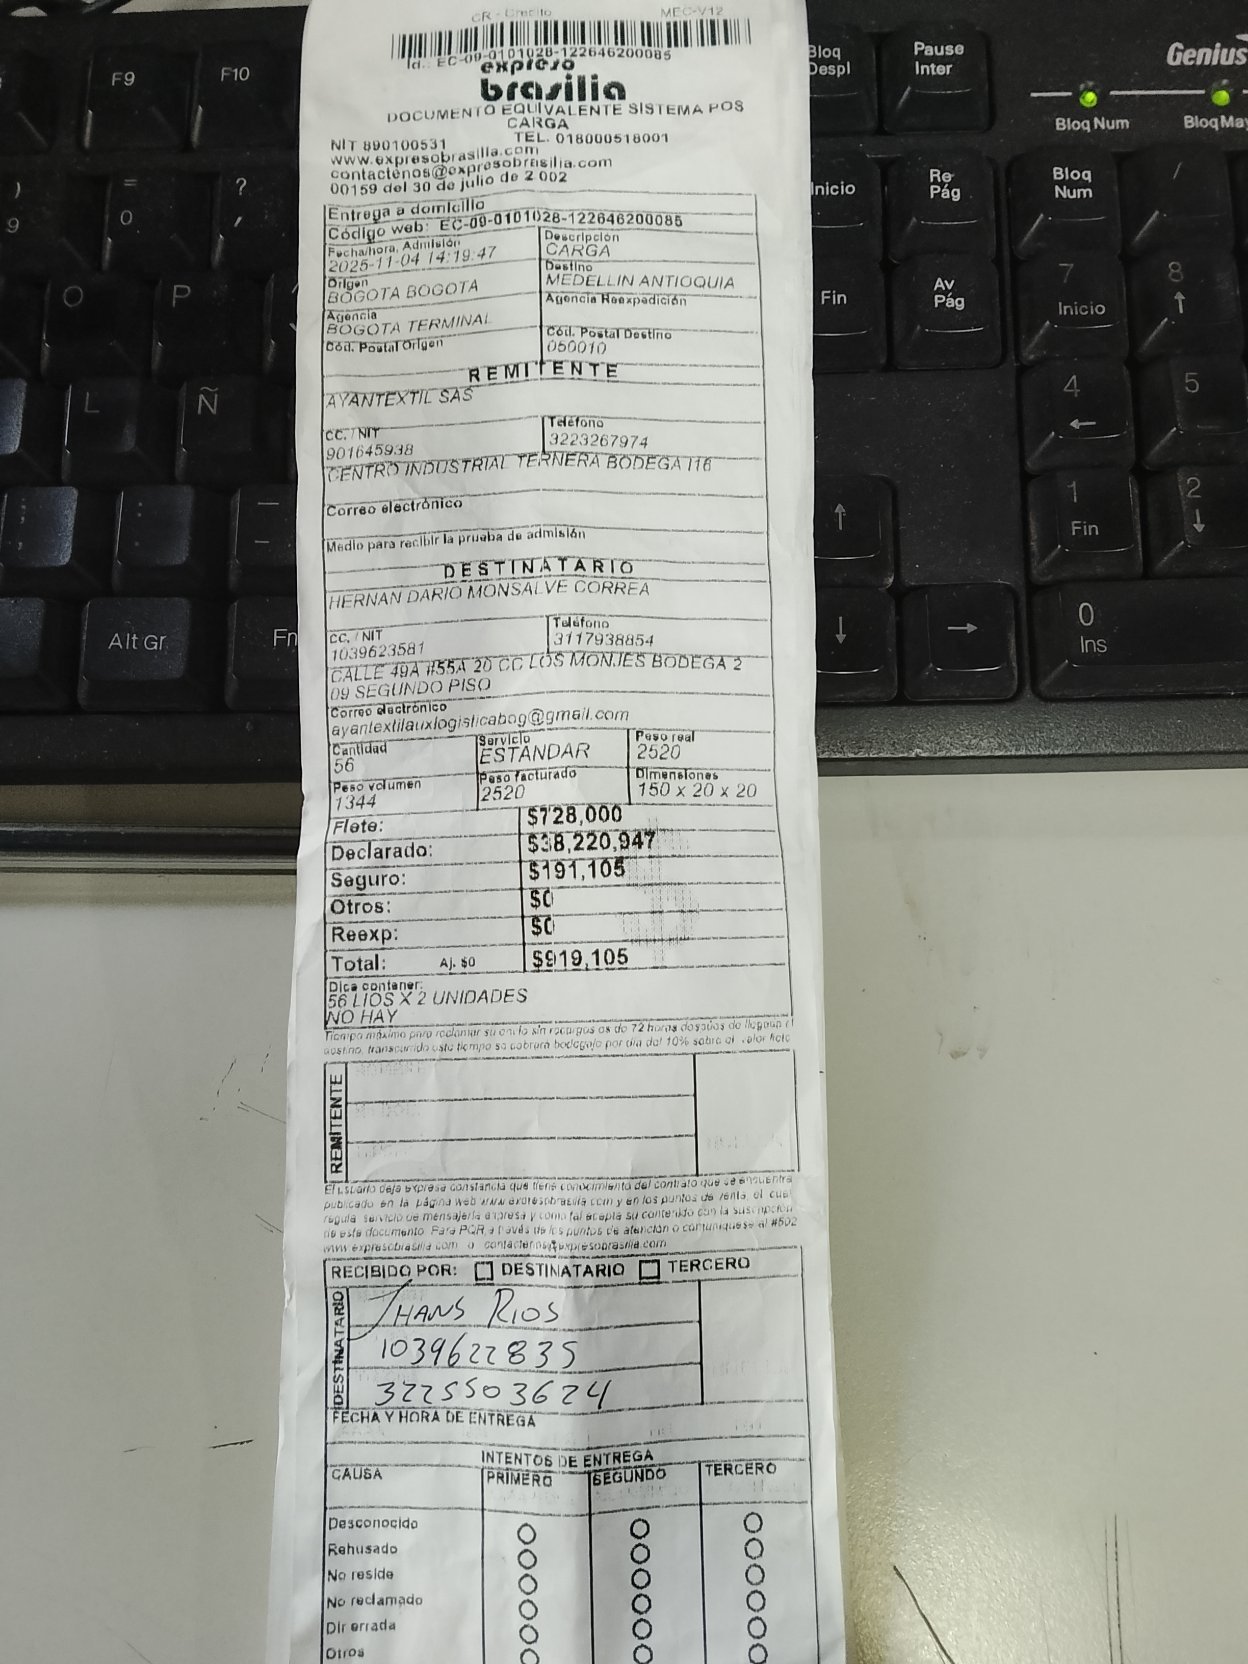 CR - Credito MEC-V12
Id.: EC-09-0101028-122646200085
expreso
brasilia
DOCUMENTO EQUIVALENTE SISTEMA POS
CARGA
NIT 890100531 TEL. 018000518001
www.expresobrasilia.com
contactenos@expresobrasilia.com
00159 del 30 de julio de 2.002
Entrega a domicilio
Código web: EC-09-0101028-122646200085
Fecha/hora, Admisión Descripción
2025-11-04 14:19:47 CARGA
Origen Destino
BOGOTA BOGOTA MEDELLIN ANTIOQUIA
Agencia Agencia Reexpedición
BOGOTA TERMINAL
Cód. Postal Origen Cód. Postal Destino
050010
REMITENTE
AYANTEXTIL SAS
CC. / NIT Teléfono
901645938 3223267974
CENTRO INDUSTRIAL TERNERA BODEGA I16
Correo electrónico
Medio para recibir la prueba de admisión
DESTINATARIO
HERNAN DARIO MONSALVE CORREA
CC. / NIT Teléfono
1039623581 3117938854
CALLE 49A #55A 20 CC LOS MONJES BODEGA 2
09 SEGUNDO PISO
Correo electrónico
ayantextilauxlogisticabog@gmail.com
Cantidad Servicio Peso real
56 ESTANDAR 2520
Peso volumen Peso facturado Dimensiones
1344 2520 150 x 20 x 20
Flete: $728,000
Declarado: $38,220,947
Seguro: $191,105
Otros: $0
Reexp: $0
Total: Aj. $0 $919,105
Dice contener:
56 LIOS X 2 UNIDADES
NO HAY
Tiempo máximo para reclamar su envío sin recargos es de 72 horas después de llegar a
destino, transcurrido este tiempo se cobrará bodegaje por día del 10% sobre el valor flete
REMITENTE
El usuario deja expresa constancia que tiene conocimiento del contrato que se encuentra
publicado en la página web www.expresobrasilia.com y en los puntos de venta, el cual
regula servicio de mensajería expresa y como tal acepta su contenido con la suscripción
de este documento. Para PQR, a través de los puntos de atención o comuníquese al #502
www.expresobrasilia.com o contactenos@expresobrasilia.com
RECIBIDO POR: DESTINATARIO TERCERO
DESTINATARIO
JHANS RIOS
1039622835
3225503624
FECHA Y HORA DE ENTREGA
INTENTOS DE ENTREGA
CAUSA PRIMERO SEGUNDO TERCERO
Desconocido
Rehusado
No reside
No reclamado
Dir errada
Otros
F9
F10
Bloq
Despl
Pause
Inter
Genius
Bloq Num
Bloq May
)
9
=
0
?
'
Inicio
Re
Pág
Bloq
Num
/
O
P
Fin
Av
Pág
7
Inicio
8
↑
L
Ñ
4
←
5
;
,
_
-
↑
1
Fin
2
↓
Alt Gr
Fn
↓
→
0
Ins